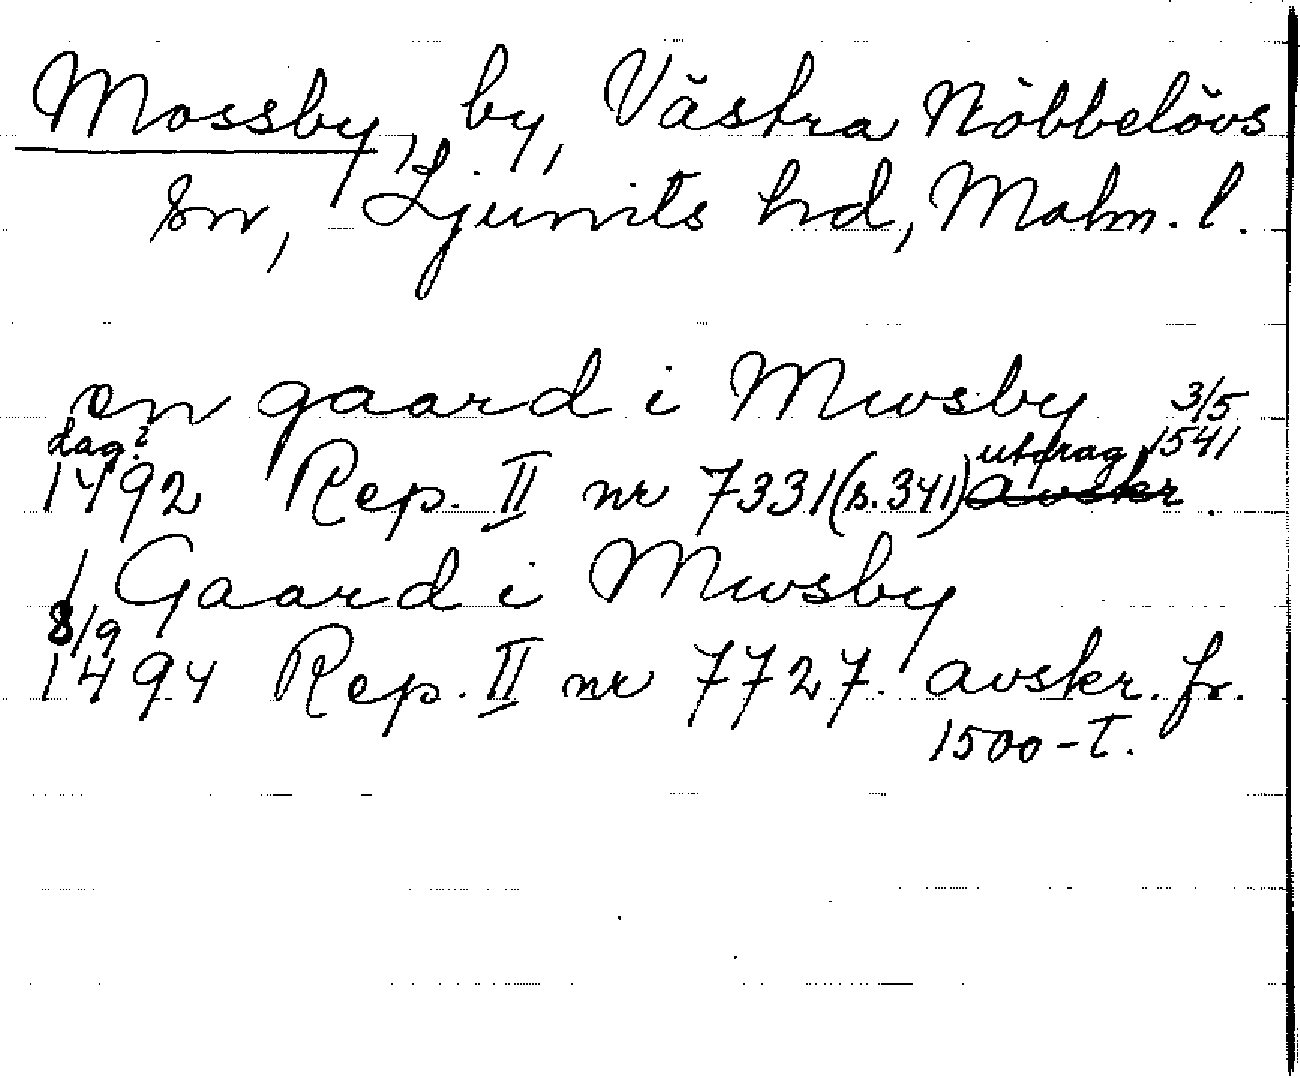 Mossby, by, Västra Nöbbelövs
sn, Ljunits hd, Malm. l.
en gaard i Mwsby 3/5
dag? utdrag 1541
1492 Rep. II nr 7331 (s. 341) avskr.
1 Gaard i Mwsby
8/9
1494 Rep. II nr 7727. avskr. fr.
1500-t.